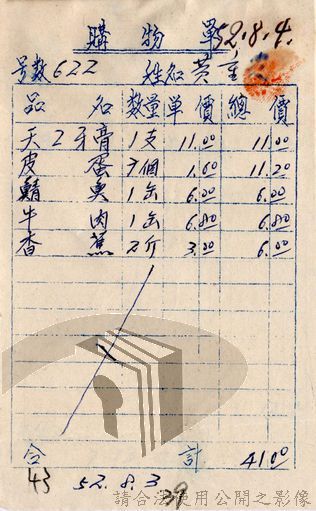 購物單 52.8.4.
号數 622 姓名 黃
品名 數量 單價 總價
天2牙膏 1支 11.00 11.00
皮蛋 7個 1.60 11.20
鯖魚 1缶 6.00 6.00
牛肉 1缶 6.80 6.80
香蕉 2斤 3.00 6.00
合計 41.00
43 52.8.3
39
請合法使用公開之影像